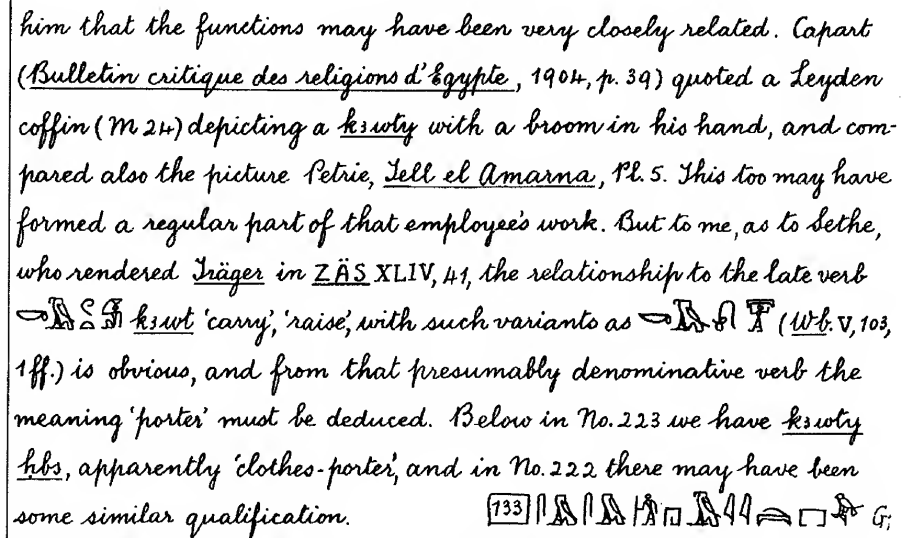 him that the functions may have been very closely related. Capart
(Bulletin critique des religions d'Égypte, 1904, p. 39) quoted a Leyden
coffin (M 24) depicting a kꜣwty with a broom in his hand, and com-
pared also the picture Petrie, Tell el Amarna, Pl. 5. This too may have
formed a regular part of that employee's work. But to me, as to Sethe,
who rendered Träger in ZÄS XLIV, 41, the relationship to the late verb
kꜣwt 'carry', 'raise', with such variants as (Wb. V, 103,
1ff.) is obvious, and from that presumably denominative verb the
meaning 'porter' must be deduced. Below in No. 223 we have kꜣwty
ḥbs, apparently 'clothes-porter', and in No. 222 there may have been
some similar qualification. 133 G,